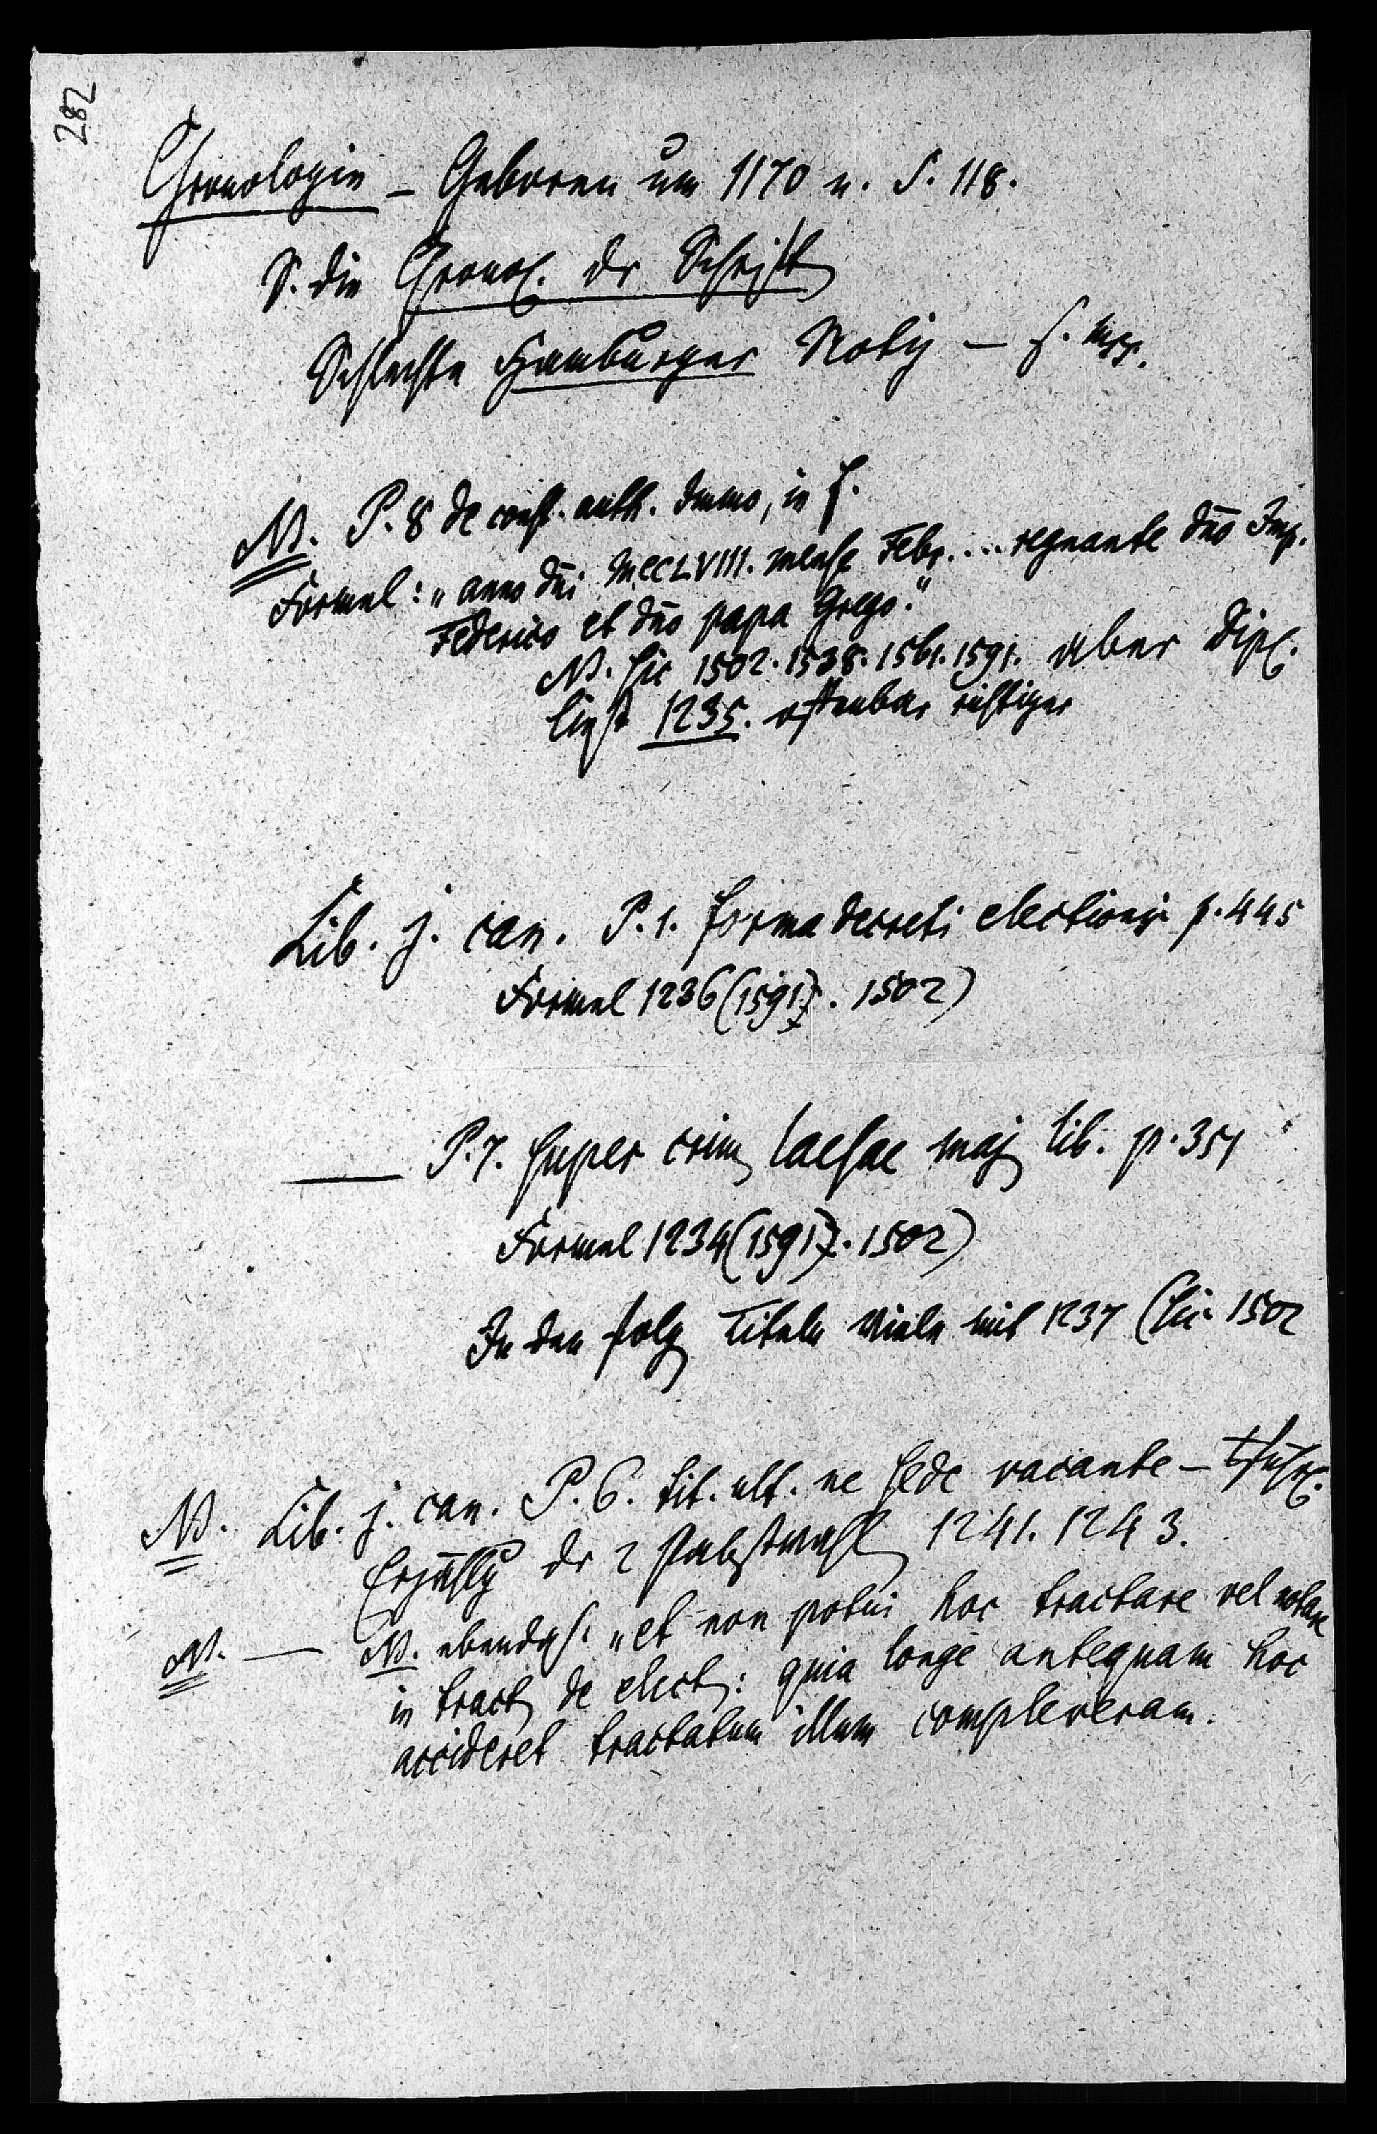 282
Chronologie – Geboren um 1170 n. S. 118.
S. die Chronol. der Schrift
Schlechte Hamburger Notiz – s. Mss.
NB. P. 8 de const. auth. in f.
Formel: „anno dni MCCLVIII. mense Febr. ... regnante dno Imp.
Federico et dno papa Grego."
NB. sic 1502. 1538. 1561. 1591. aber Dipl.
liest 1235. offenbar richtiger
Lib. j. can. P. 1. forma decreti electionis p. 445
Formel 1236 (1591. 1502)
— P. 7. super crim laesae maj lib. p. 351
Formel 1234 (1591. 1502)
In den folg Titeln viele mit 1237 (sic 1502
NB. Lib. j. can. P. 6. tit. ult. ne sede vacante –
Erzählg der 2 Pabstwahl 1241. 1243.
NB. — NB. ebendas. „et non potui hoc tractare vel notare
in tract de elect: quia longe antequam hoc
accideret tractatum illum compleveram.